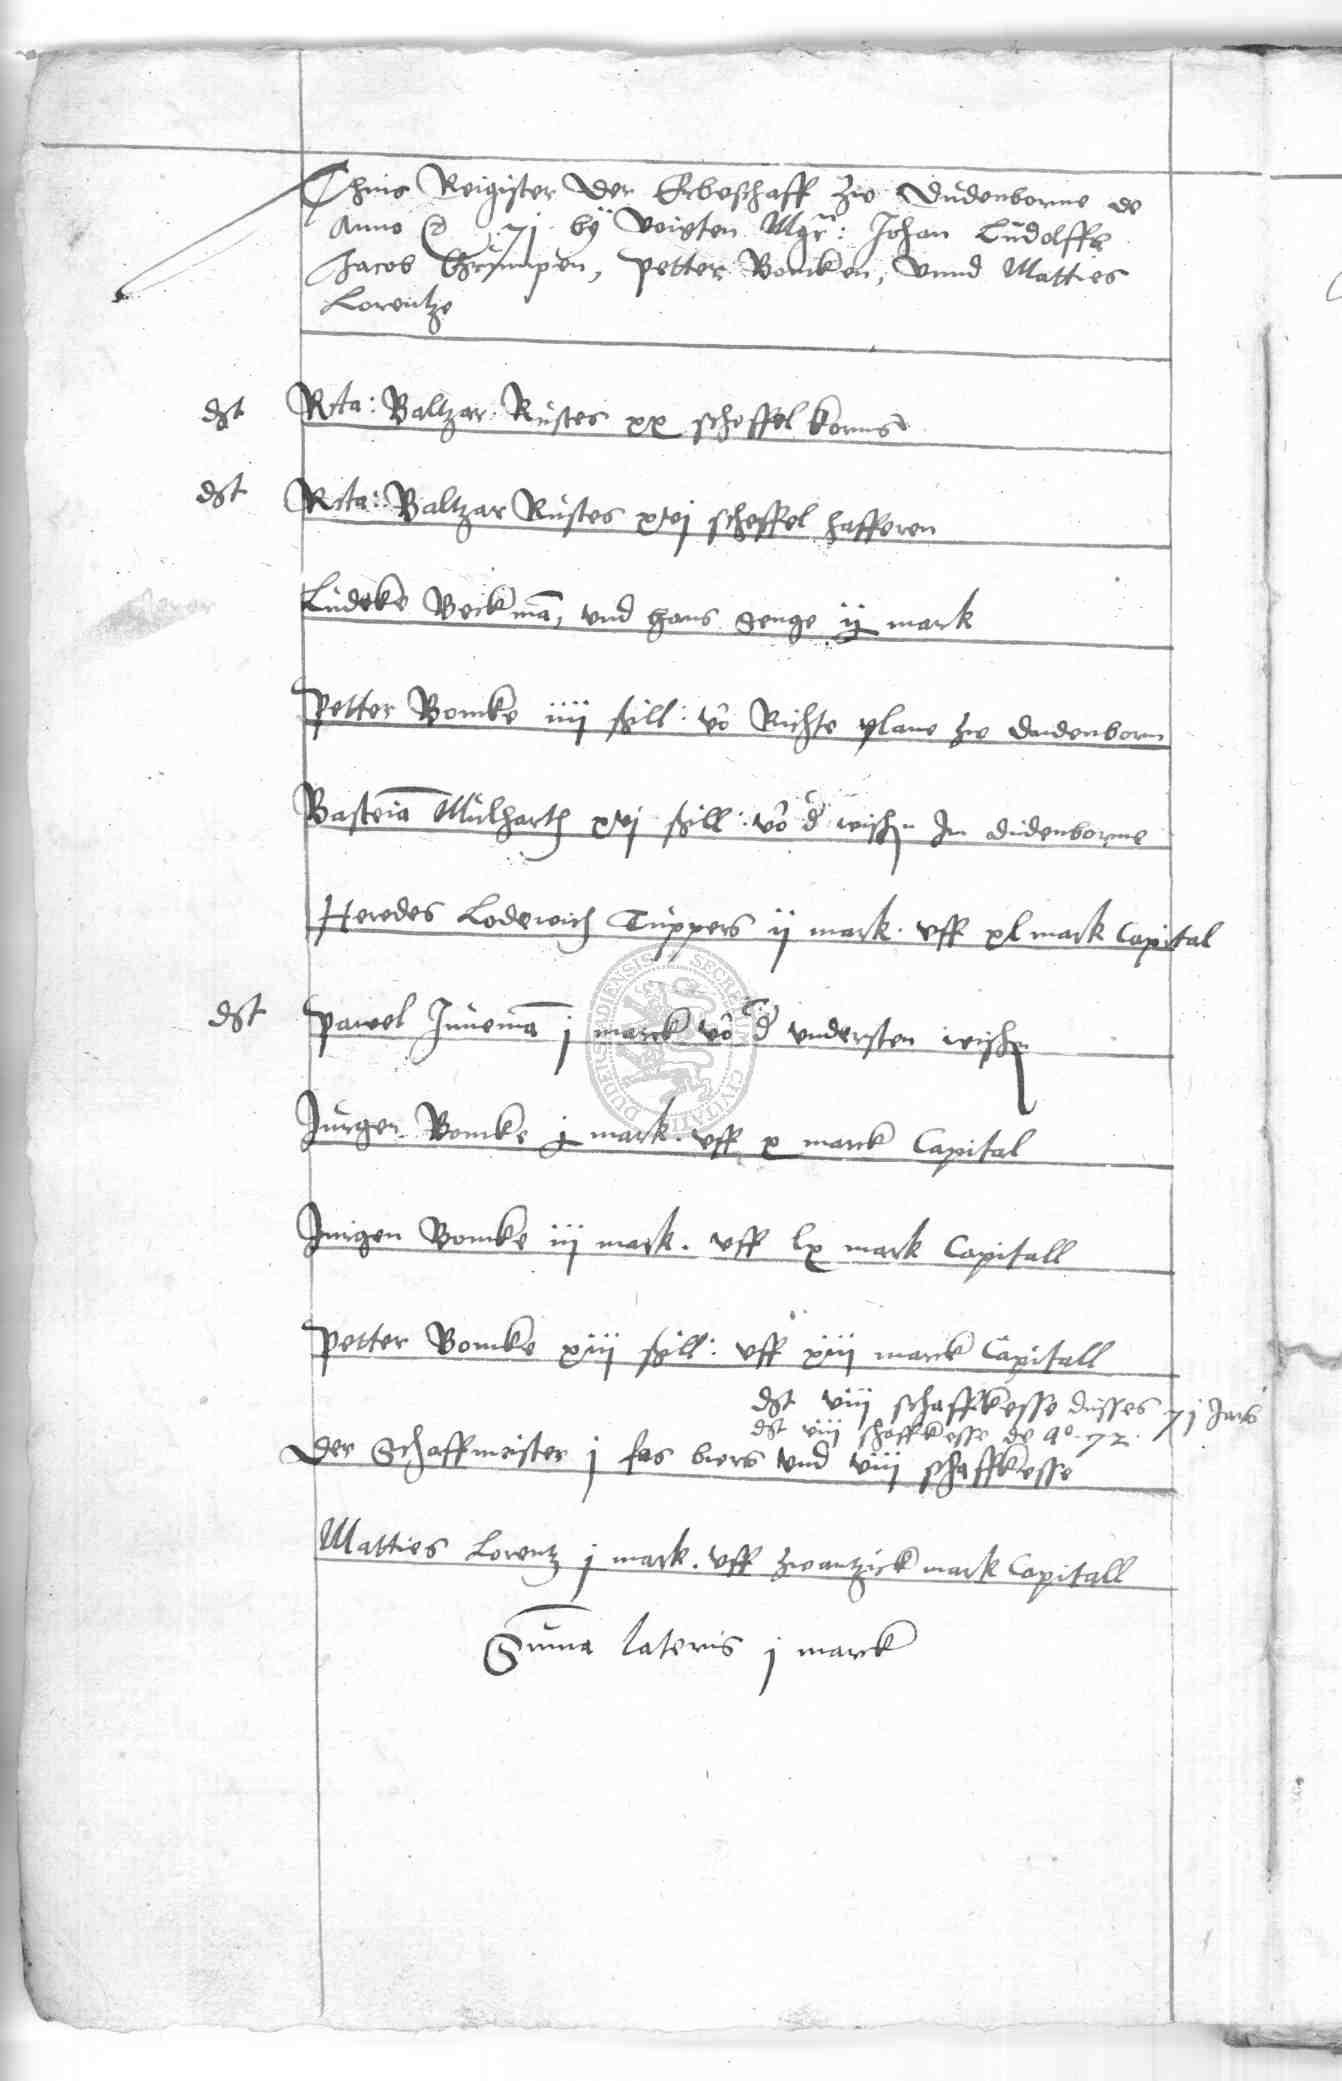 Thins Reigister der Erbeschafft zw Dudenborne de
Anno 71 by Voigten Mgr: Johan Ludolffs
Jacob Grympen, Petter Bomken, vnnd Matties
Lorentze
dt Rta: Baltzar Rustes xx scheffel korns
dt Rta: Baltzar Rustes xvj scheffel hafferen
Ludeke Beckmā, vnd Hans Henge ij mark
Petter Bomke iiij ßill: vō Richte plane zw dudenborn
Basteiā Mulharth xvj ßill: vō d wischn In dudenborne
Heredes Lodewich Tuppers ij mark. vff xl mark Capital
dt Pawel Junemā j marck vō d vndersten wischn
Jurgen Bomke j mark. vff x marck Capital
Jurgen Bomke iij mark. vff lx mark Capitall
Petter Bomke xiij ßill: vff xiij marck Capitall
dt viij schaffkesse dusses 71 Jars
dt viij schaffkesse de Aº. 72.
Der Schaffmeister j fas biers vnd viij schaffkesse
Matties Lorentz j mark. vff zwantzick mark Capitall
Sūma lateris j marck
DUDERSTADIENSIS SECRETUM CIVITATIS